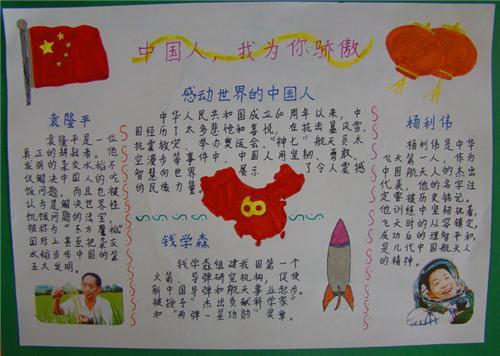 中国人，我为你骄傲
感动世界的中国人
中华人民共和国成立60周年以来，中
国经历了太多悲怆和喜悦，在抗击暴风雪、
抗震救灾、举办奥运会、“神七”航天员太
空漫步等事件中，中国人用坚韧、勇敢、
智慧向世界展示了令人震撼
的民族力量。
60
袁隆平
袁隆平是一位
真正的耕耘者。他
发明的杂交水稻不
仅解决中国人的吃
饭问题，而且也被
认为是解决世界性
饥饿问题的法宝，
国际上甚至把杂交稻
称为“东方魔稻”
五大发明。
钱学森
钱学森组建我国第一个
火箭、导弹研究机构，促使
新中国导弹和航天事业起步。
被授予“杰出贡献科学家”
和“两弹一星功勋”奖章。
杨利伟
杨利伟是中华
飞天第一人，作为
中国航天人的杰出
代表，他的名字注
定要被历史铭记。
他训练中坚韧执着，
飞天时的从容镇定，
成功后的理智平和，
是几代中国航天人
的精神。